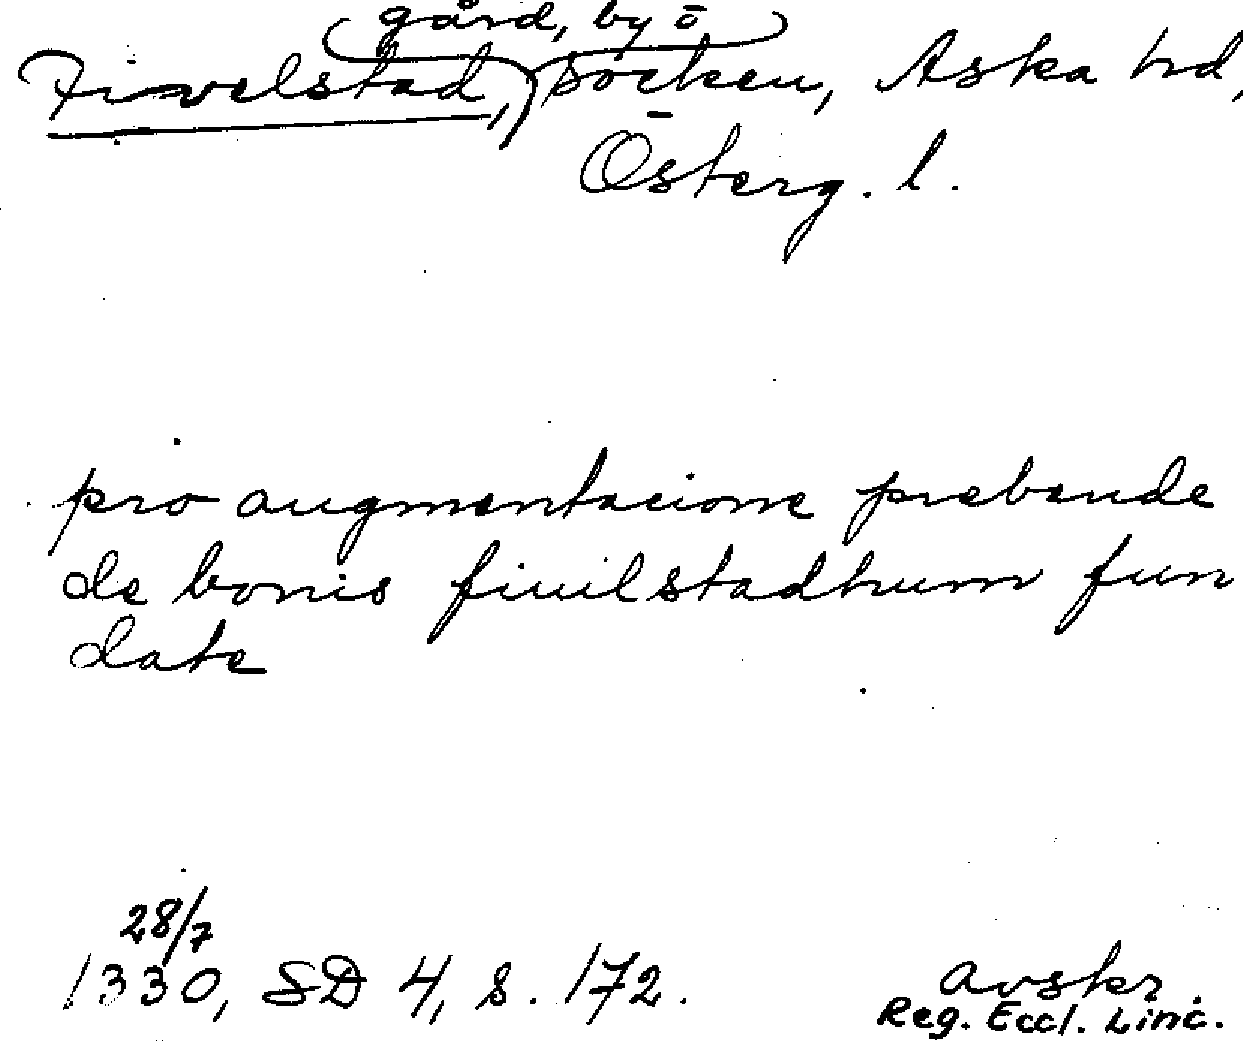 gård, by ō
Fivelstad, socken, Aska hd,
Österg. l.
pro augmentacione prebende
de bonis fiuilstadhum fun
date
28/7
1330, SD 4, s. 172.
avskr.
Reg. Eccl. Linc.